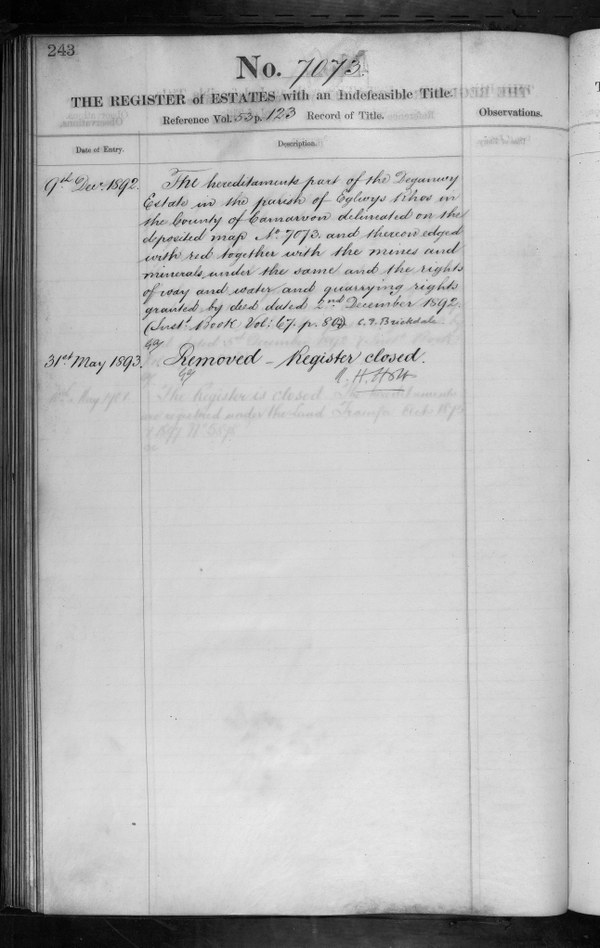 243
No. 7073.
THE REGISTER of ESTATES with an Indefeasible Title.
Reference Vol. 53 p. 123 Record of Title.
Observations.
Date of Entry.
Description.
9th Decr. 1892.
The hereditaments part of the Deganwy
Estate in the parish of Eglwys Rhos in
the County of Carnarvon delineated on the
deposited map No. 7073. and thereon edged
with red together with the mines and
minerals under the same and the rights
of way and water and quarrying rights
granted by deed dated 2nd December 1892.
(Inst. Book Vol: 67. p. 80) C. F. Brickdale
31st May 1893.
Removed - Register closed.
R. H. Holt
The Register is closed. The hereditaments
are registered under the Land Transfer Act 1875